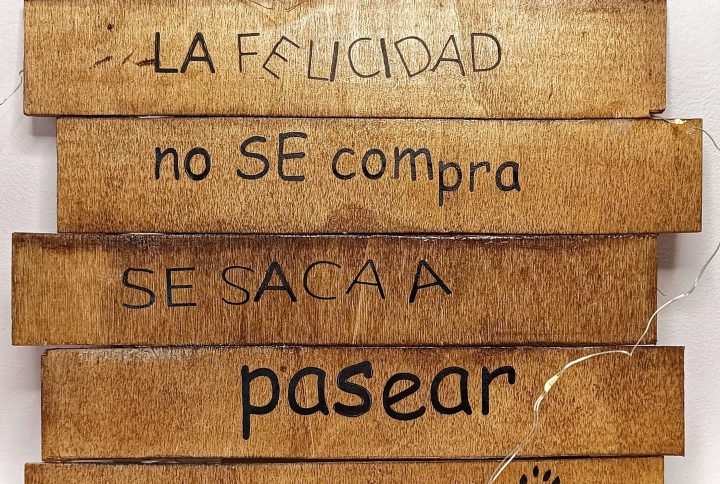 LA FELICIDAD
no SE compra
SE SACA A
pasear